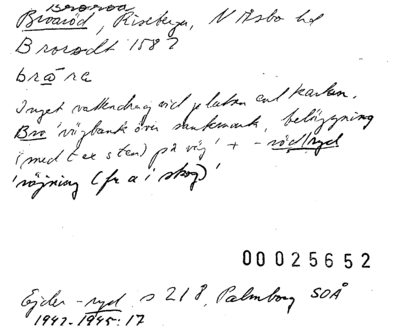 broaroa
Broaröd, Riseberga, N Åsbo hd
Brorodt 158?
bråra
Inget vattendrag vid platsen enl kartan.
Bro 'vägbank över sankmark, beläggning
(med t ex sten) på väg' + -röd/ryd
'röjning (fr a i skog)'
00025652
Ejder -ryd s 218, Palmborg SOÅ
1942-1945:17